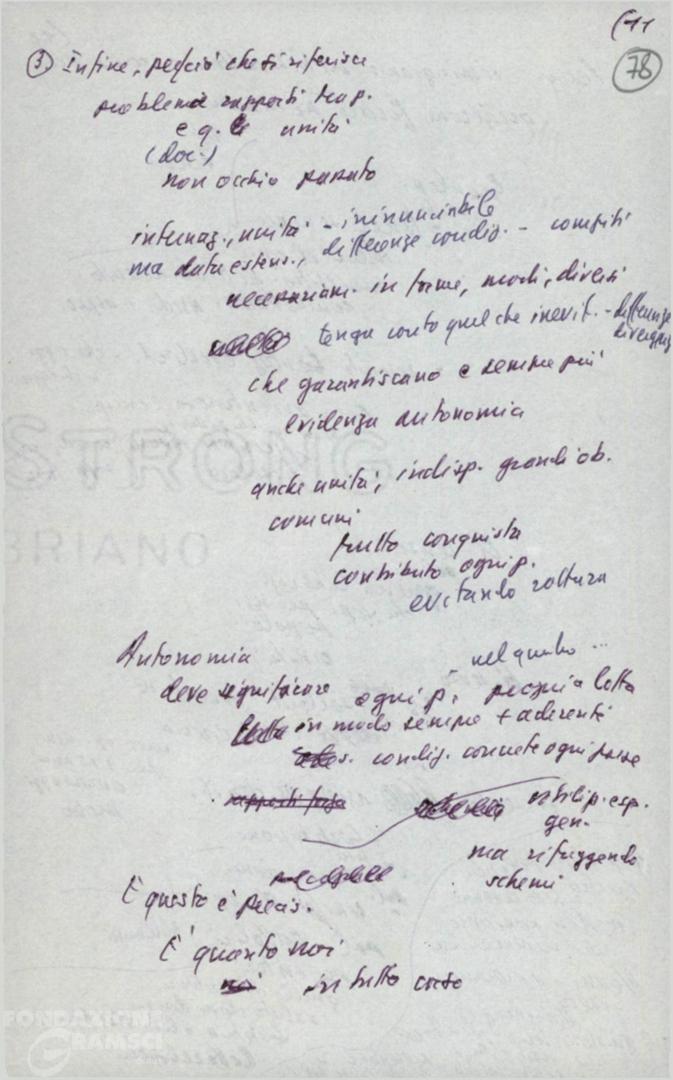 (11
78
③ Infine, per ciò che si riferisce
problema rapporti tra p.
e q. unità
(doc.)
non occhio passato
internaz., unità - irrinunciabile
ma data estens., differenze condiz. - compiti
necessariam. in forme, modi, diversi
tenga conto quel che inevit. - differenze
divergenze
che garantiscano e sempre più
evidenza autonomia
anche unità, indisp. grandi ob.
comuni
frutto conquista
contributo ogni p.
evitando rottura
Autonomia
nel quadro ...
deve significare ogni p. propria lotta
in modo sempre + aderente
condiz. concrete ogni paese
rapporti forza
utiliz. esp.
gen.
ma rifuggendo
schemi
E questo è precis.
E' quanto noi
in tutto corso
FONDAZIONE
GRAMSCI